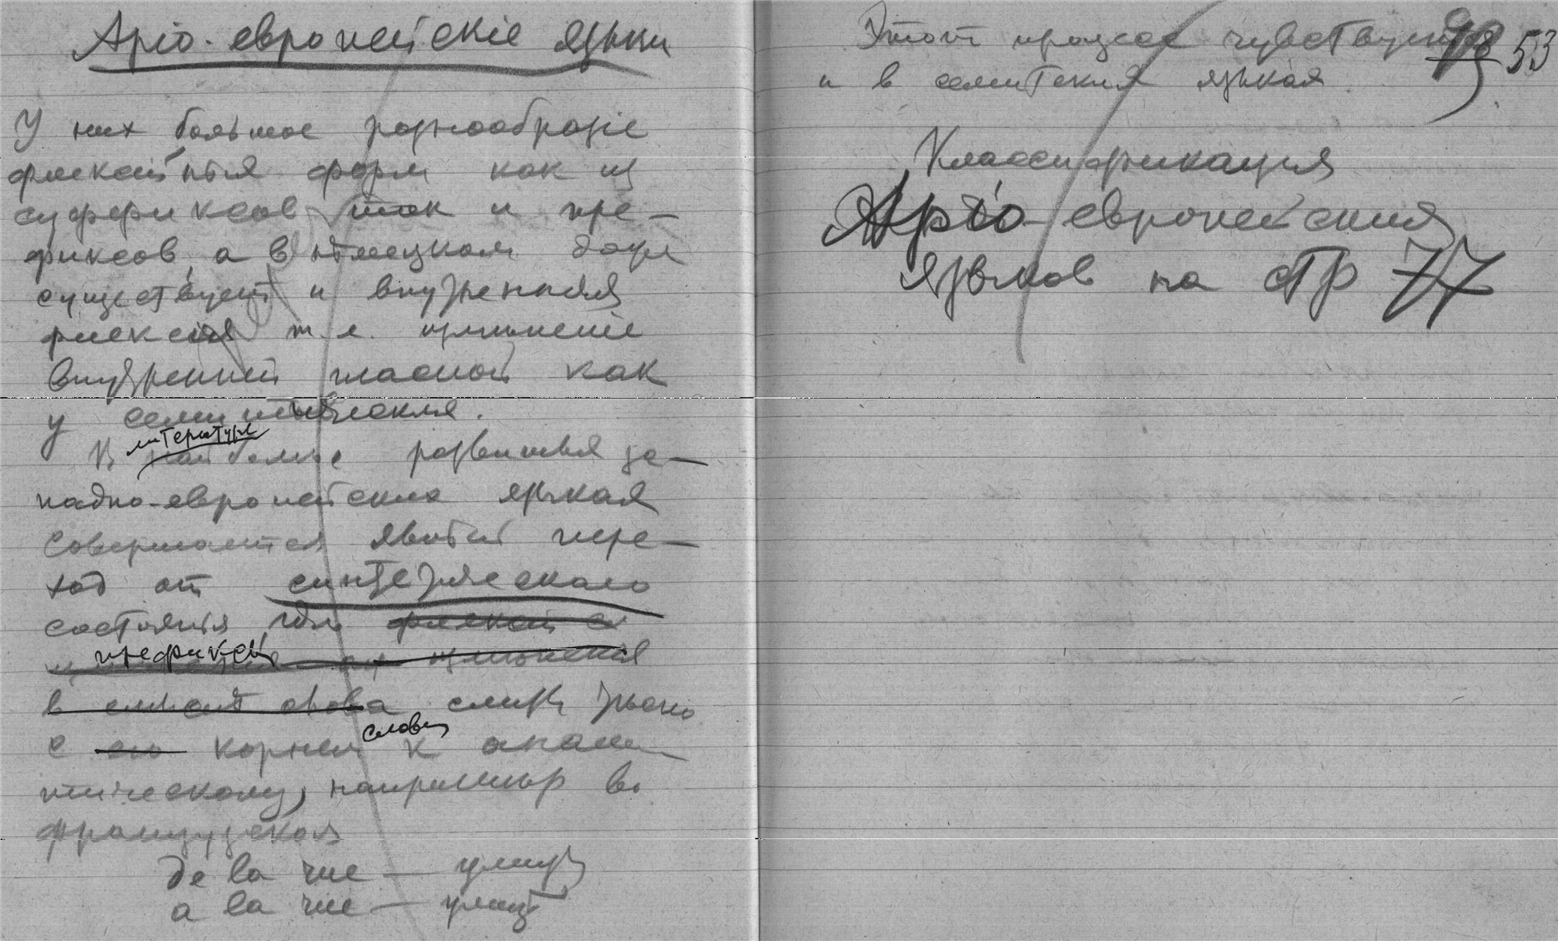 Аріо-европейскіе языки
У них большое разнообразіе
флексійныя форм как из
суффиксов так и пре-
фиксов, а в нѣмецком даже
существует и внутренняя
флексія т.е. измѣненіе
внутренней гласной как
у семитическия.
литературн
В наиболѣе развитыя за-
падно-европейския языкая
совершается явный пере-
ход от синтетическаго
состоянія гдѣ флексія с
префиксы измѣненія
в слова слиты
с его корнем слова к анали
тическому, например во
французском
de la rue — улицы
a la rue — улицѣ
Этот процесс чувствуется
и в семитския языкая.
98 53
Классификация
Аріо-европейския
языков на стр 77